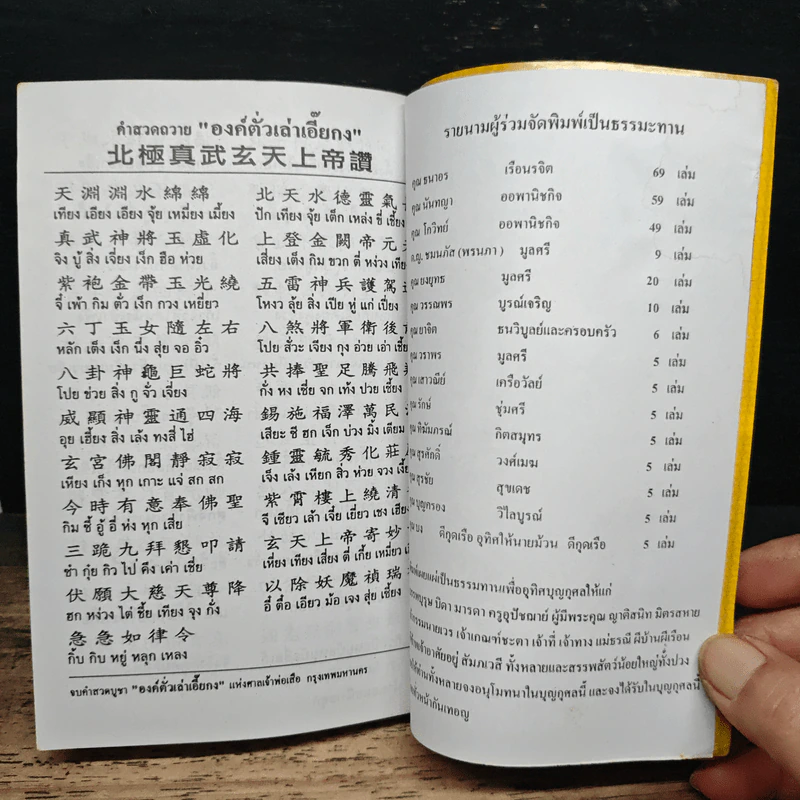 คำสวดถวาย "องค์ตั่วเล่าเอี๊ยกง"
北極真武玄天上帝讚
天淵淵水綿綿 北天水德靈氣
เทียง เอียง เอียง จุ้ย เหมี่ยง เมี้ยง ปัก เทียง จุ้ย เต็ก เหล่ง ขี่ เชี้ยง
真武神將玉虛化 上登金闕帝元
จิง บู้ สิ่ง เจี่ยง เง็ก ฮือ ห่วย เสี่ยง เต็ง กิม ขวก ตี่ หง่วง เทียง
紫袍金帶玉光繞 五雷神兵護駕
จี่ เพ้า กิม ตั่ว เง็ก กวง เหยี่ยว โหงว ลุ้ย สิ่ง เปีย หู่ แก่ เปี่ยง
六丁玉女隨左右 八煞將軍衛後
หลัก เต็ง เง็ก นึ่ง สุ่ย จอ อิ๋ว โปย สั่วะ เจียง กุง อ่วย เอ่า เชี้ยง
八卦神龜巨蛇將 共捧聖足騰飛
โปย ข่วย สิ่ง กู จั่ว เจี่ยง กั่ง หง เซี่ย จก เท้ง ปวย เชี้ยง
威顯神靈通四海 錫施福澤萬民
อุย เฮี้ยง สิ่ง เล้ง ทงสี่ ไฮ่ เสียะ ซี ฮก เจ็ก บ่วง มิ่ง เตียม
玄宮佛閣靜寂寂 鍾靈毓秀化莊
เหียง เก็ง หุก เกาะ แจ่ สก สก เจ็ง เล้ง เหียก สิ่ว ห่วย จวง
今時有意奉佛聖 紫霄樓上繞清
กิม ซี้ อู้ อี่ ห่ง หุก เสี่ย จี เซียว เล้า เจี่ย เยี่ยว เชง เฮียง
三跪九拜懇叩請 玄天上帝寄妙
ซำ กุ๋ย กิว ไป่ คึง เค่า เชี่ย เหี่ยง เทียง เสี่ยง ตี่ เกี้ย เหมี่ยว
伏願大慈天尊降 以除妖魔禎瑞
ฮก หง่วง ไต่ ซื้ย เทียง จุง กั่ง อี่ ตื่อ เอียว ม้อ เจง สุ่ย เชี้ยง
急急如律令
กิ๊บ กิบ หยู่ หลุก เหลง
จบคำสวดบูชา "องค์ตั่วเล่าเอี๊ยกง" แห่งศาลเจ้าพ่อเสือ กรุงเทพมหานคร
รายนามผู้ร่วมจัดพิมพ์เป็นธรรมะทาน
คุณ ธนาอร เรือนรจิต 69 เล่ม
คุณ นันทญา ออพานิชกิจ 59 เล่ม
คุณ โกวิทย์ ออพานิชกิจ 49 เล่ม
ด.ญ. ชมนภัส (พรนภา) มูลศรี 9 เล่ม
คุณ ยงยุทธ มูลศรี 20 เล่ม
คุณ วรรณพร บูรณ์เจริญ 10 เล่ม
คุณ ยาจิต ธนวิบูลย์และครอบครัว 6 เล่ม
คุณ วราพร มูลศรี 5 เล่ม
คุณ เสาวณีย์ เครือวัลย์ 5 เล่ม
คุณ รักษ์ ชุ่มศรี 5 เล่ม
คุณ ทิฆัมภรณ์ กิตสมุทร 5 เล่ม
คุณ สุรศักดิ์ วงศ์เมฆ 5 เล่ม
คุณ สุรชัย สุขเดช 5 เล่ม
คุณ บุญครอง วิไลบูรณ์ 5 เล่ม
คุณ บง ดีกุดเรือ อุทิศให้นายม้วน ดีกุดเรือ 5 เล่ม
เผยแผ่เป็นธรรมทานเพื่ออุทิศบุญกุศลให้แก่
บิดา มารดา ครูอุปัชฌาย์ ผู้มีพระคุณ ญาติสนิท มิตรสหาย
กรรมนายเวร เจ้าเกณฑ์ชะตา เจ้าที่ เจ้าทาง แม่ธรณี ผีบ้านผีเรือน
เจ้าอาศัยอยู่ สัมภเวสี ทั้งหลายและสรรพสัตว์น้อยใหญ่ทั้งปวง
ท่านทั้งหลายจงอนุโมทนาในบุญกุศลนี้ และจงได้รับในบุญกุศลนี้
หน้ากันเทอญ